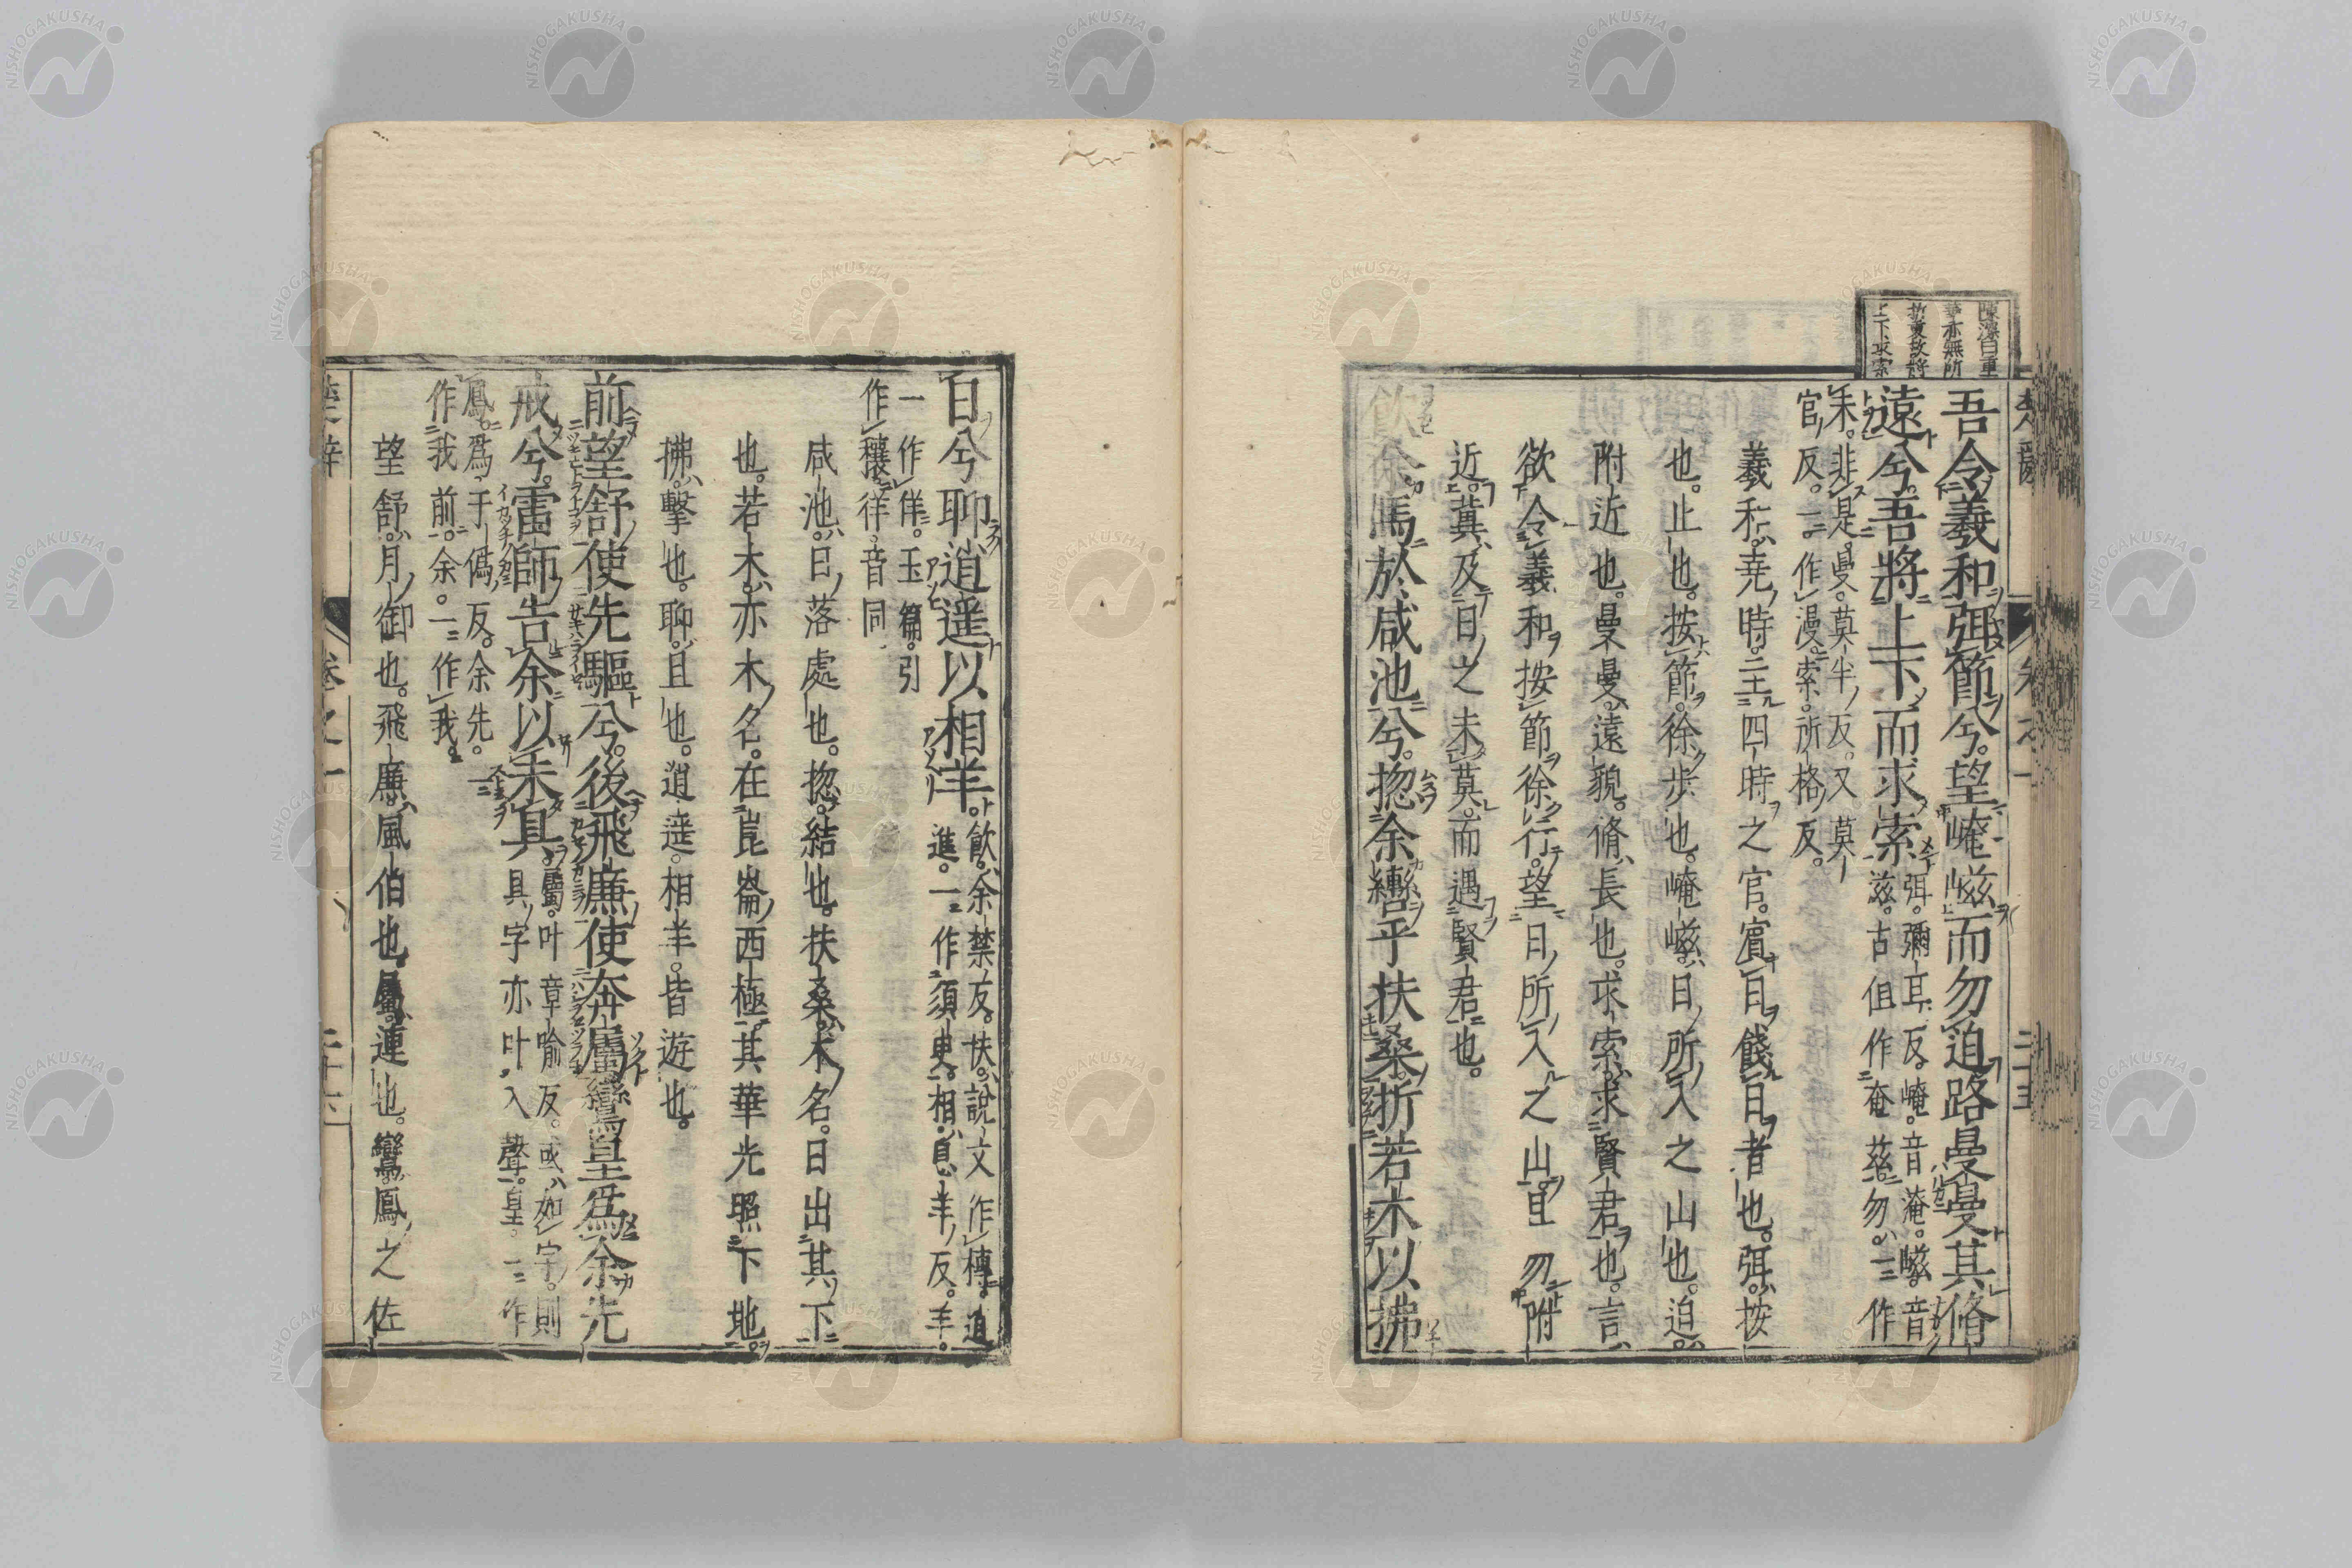 陳深曰重
華亦無所
折衷故將
上下求索
吾令羲和弭節兮。望崦嵫而勿迫路曼曼其脩
遠兮。吾將上下而求索
弭。彌耳反。崦。音淹。嵫。音
滋。古但作奄茲。勿。一作
未。非是。曼。莫半反。又莫
官反。一作漫。索。所格反。
羲和。堯時。主四時之官。賓日餞日者也。弭。按
也。止也。按節。徐步也。崦嵫。日所入之山也。迫。
附近也。曼曼。遠貌。脩。長也。求索。求賢君也。言
欲令羲和按節徐行。望日所入之山。且勿附
近。冀及日之未莫。而遇賢君也。
飲余馬於咸池兮。揔余轡乎扶桑。折若木以拂
日兮聊逍遙以相羊。
飲。余禁反。扶。說文作榑。逍
進。一作須臾。相。息羊反。羊。
一作佯。玉篇。引
作穰徉。音同
咸池。日落處也。揔。結也。扶桑。木名。日出其下
也。若木。亦木名。在崑崙西極。其華光照下地。
拂。擊也。聊。且也。逍遙。相羊。皆遊也。
前望舒使先驅兮。後飛廉使奔屬鸞皇為余先
戒兮。雷師告余以未具
屬。叶章喻反。或如字。則
具字亦叶入聲。皇。一作
鳳。為。于偽反。余先。一
作我前。余。一作我。
望舒。月御也。飛廉。風伯也。屬。連也。鸞。鳳之佐
楚辭
卷之一